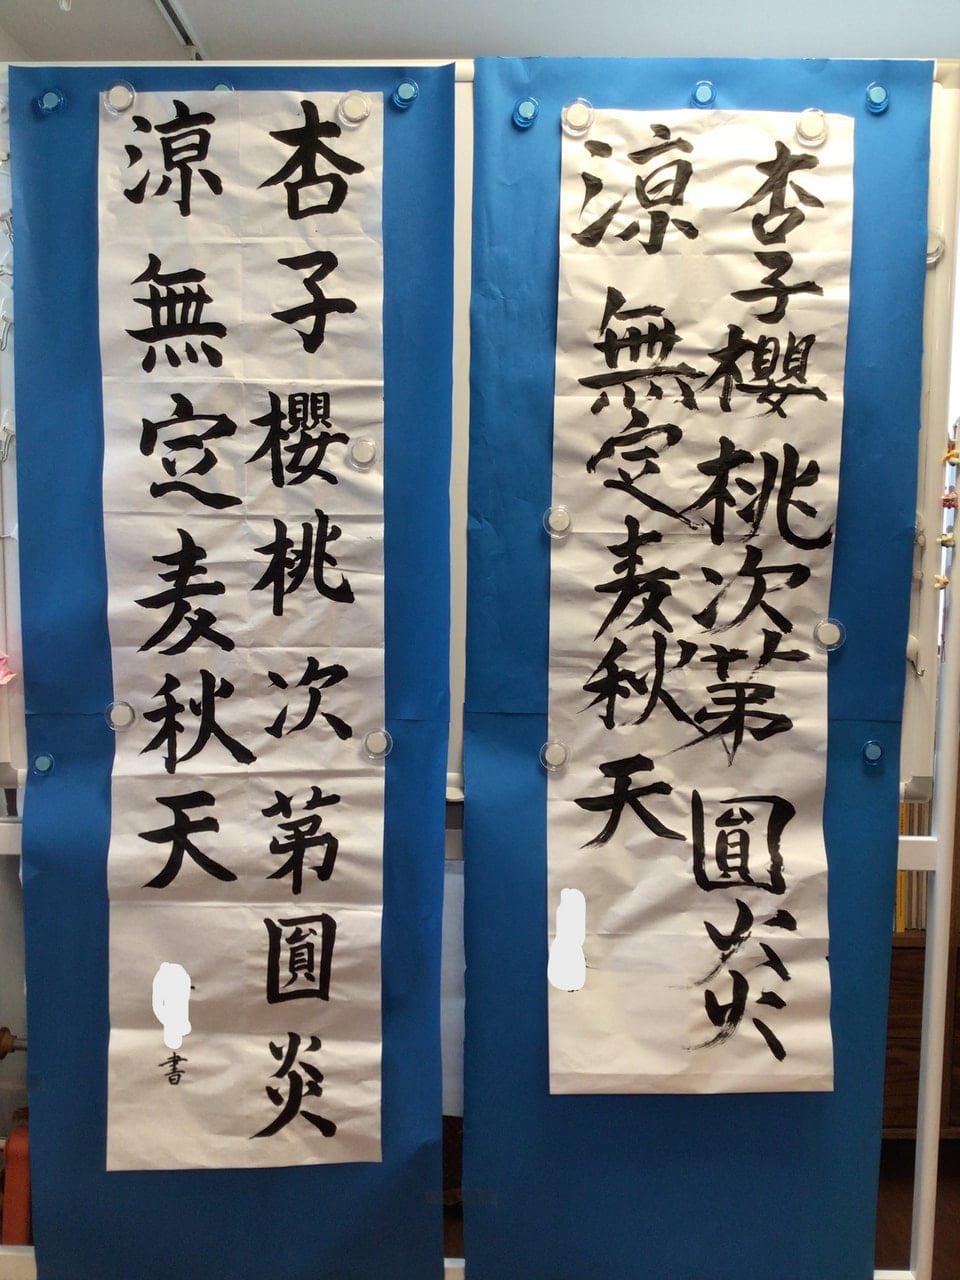 杏子櫻桃次第圓炎
涼無定麦秋天
書
杏子櫻桃次第圓炎
涼無定麦秋天